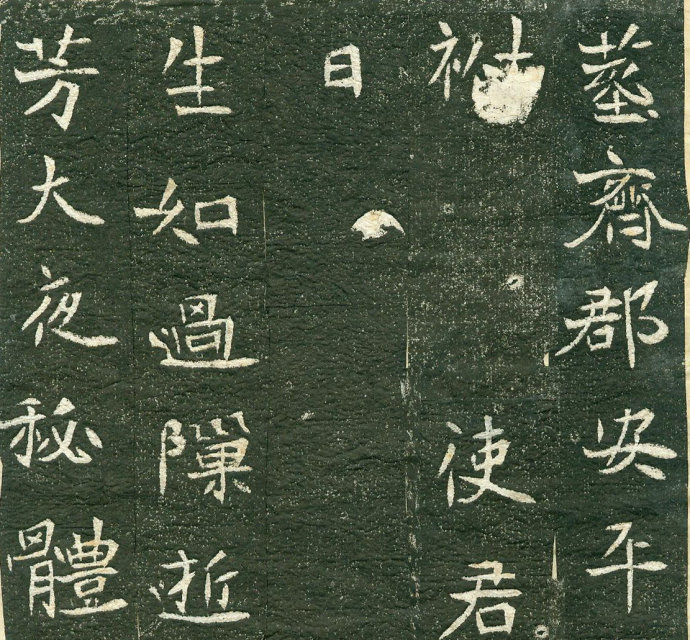 塟齊郡安平
祔使君
日
生如過隟逝
芳大夜秘體